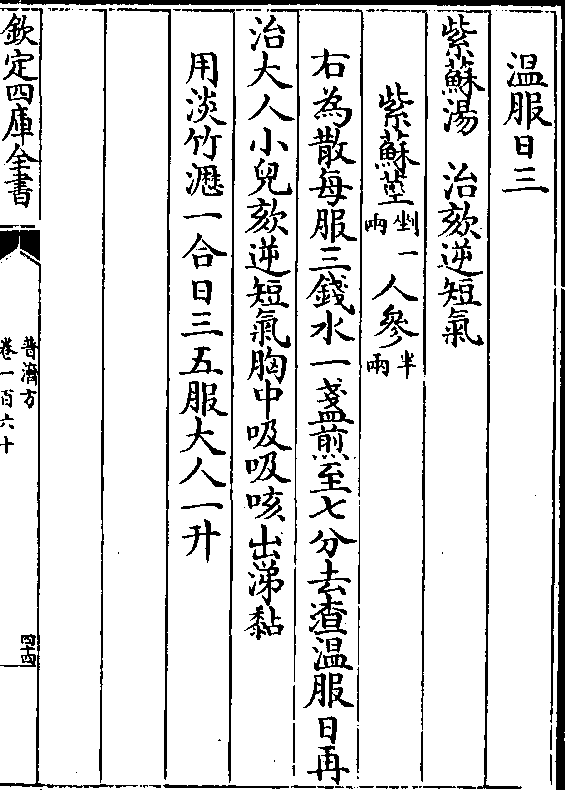 温服日三
紫蘇湯　治欬逆短氣
紫蘇莖剉一兩　人參半兩
右為散每服三錢水一盞煎至七分去渣温服日再
治大人小兒欬逆短氣胸中吸吸咳出涕黏
用淡竹瀝一合日三五服大人一升
欽定四庫全書
普濟方
卷一百六十
四十四